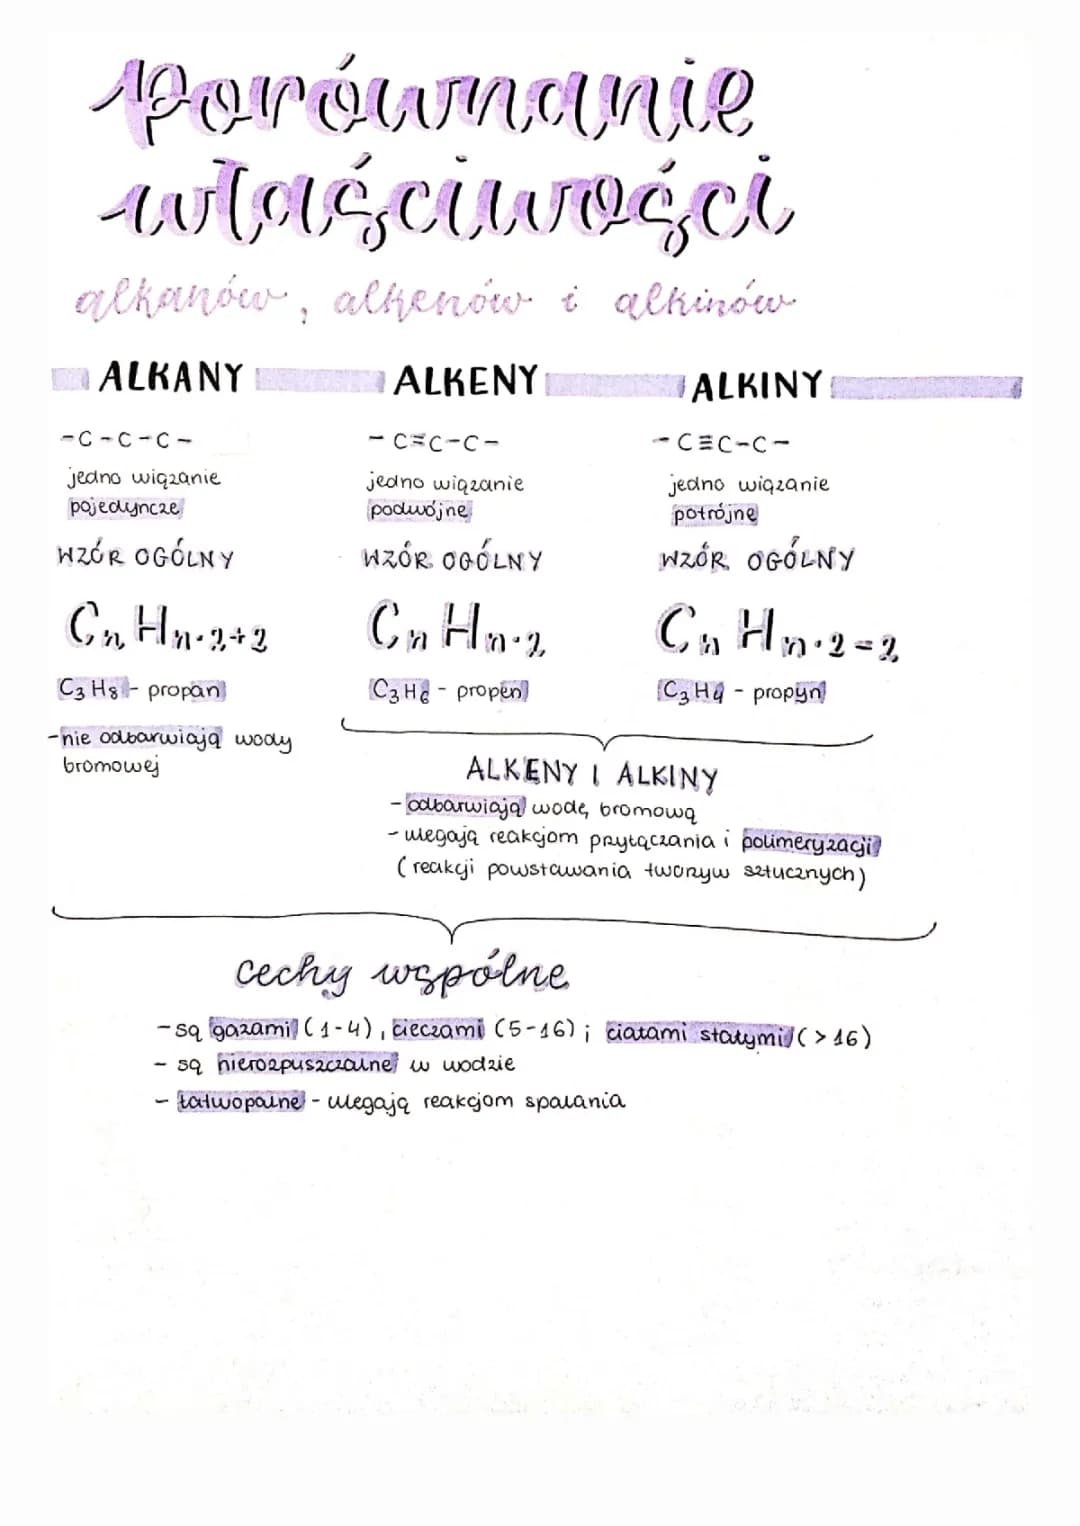 Porównanie
właściwości
alkanów, alkenów i alkinów
ALKANY ALKENY ALKINY
-C-C-C- -C=C-C- -C≡C-C-
jedno wiązanie jedno wiązanie jedno wiązanie
pojedyncze podwójne potrójne
WZÓR OGÓLNY WZÓR OGÓLNY WZÓR OGÓLNY
CnHn·2+2 CnHn·2 CnHn·2=2
C3H8 - propan C3H6 - propen C3H4 - propyn
-nie odbarwiają wody
bromowej
ALKENY I ALKINY
- odbarwiają wodę bromową
- ulegają reakcjom przyłączania i polimeryzacji
(reakcji powstawania tworzyw sztucznych)
cechy wspólne
- są gazami (1-4), cieczami (5-16) i ciałami stałymi (>16)
- są nierozpuszczalne w wodzie
- łatwopalne - ulegają reakcjom spalania